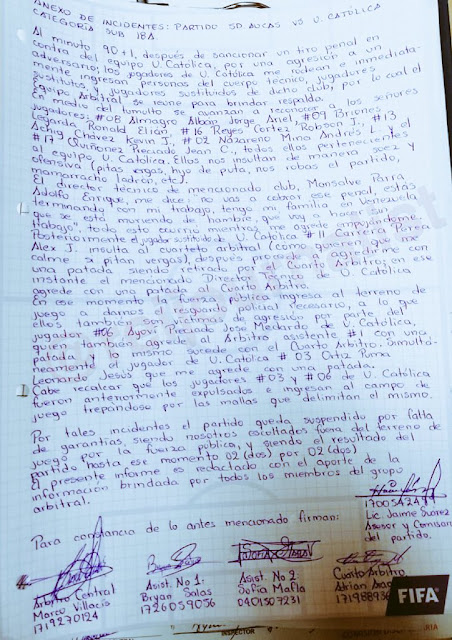 ANEXO DE INCIDENTES: PARTIDO SD AUCAS VS U. CATÓLICA
CATEGORÍA SUB 18A.
Al minuto 90+1, después de sancionar un tiro penal en
contra del equipo U. Católica, por una agresión a un
adversario; los jugadores de U. Católica me rodean e inmediata-
mente ingresan personas del cuerpo técnico, jugadores
sustitutos y jugadores sustituidos de dicho club, por lo cual el
Equipo Arbitral se reune para brindar respaldo.
En medio del tumulto se avanzan a recopilar a los señores
jugadores: #08 Alban Jorge Ariel, #09 Briones
Legarda Ronald Elian, #16 Reyes Cortez Robson J., #13
Achig Chávez Kevin J., #02 Nazareno Minda Andrés L. y el
#17 Quiñonez Preciado Jean C., todos ellos pertenecientes
al equipo U. Católica. Ellos nos insultan de manera soez y
ofensiva (pitas vergas, hijo de puta, nos robas el partido,
mamarracho ladrón, etc).
El director técnico de mencionado club, Monsalve Parra
Adolfo Enrique, me dice: no vas a cobrar ese penal, estás
terminando con mi trabajo, tengo mi familia en Venezuela
que se está muriendo de hambre, que voy a hacer sin
trabajo", todo esto ocurrió mientras me agrede empujándome.
Posteriormente el jugador sustituido de U. Católica #11 Carrera Parea
Alex J. insulta al cuarteto arbitral (cómo quieren que me
calme si pitan vergas), después procede a agredirme con
una patada siendo retirado por el Cuarto Árbitro; en ese
instante el mencionado Director Técnico de U. Católica
agrede con una patada al Cuarto Árbitro.
En ese momento la fuerza pública ingresa al terreno de
juego a darnos el resguardo policial necesario, a lo que
ellos también son víctimas de agresión por parte del
jugador #06 Ayoví Preciado Jose Medardo de U. Católica,
quien también agrede al Árbitro asistente #1 con una
patada y lo mismo sucede con el Cuarto Árbitro. Simultá-
neamente el jugador de U. Católica #03 Ortiz Puma
Leonardo Jesús que me agrede con una patada.
Cabe recalcar que los jugadores #03 y #06 de U. Católica
fueron anteriormente expulsados e ingresan al campo de
juego trepándose por las mallas que delimitan el mismo.
Por tales incidentes el partido queda suspendido por falta
de garantías, siendo nosotros escoltados fuera del terreno de
juego por la fuerza pública, y siendo el resultado del
partido hasta ese momento 02 (dos) por 02 (dos)
El presente informe es redactado con el aporte de la
información brindada por todos los miembros del grupo
arbitral.
Para constancia de lo antes mencionado firman:
Lic. Jaime Suarez
Asesor y Comisario
del partido.
Árbitro Central
Marco Villacis
1719270124
Asist. No 1:
Bryan Salas
1726059056
Asist. No 2
Sofía Mafla
0401507231
Cuarto Árbitro
Adrian
FIFA
INSPECTOR